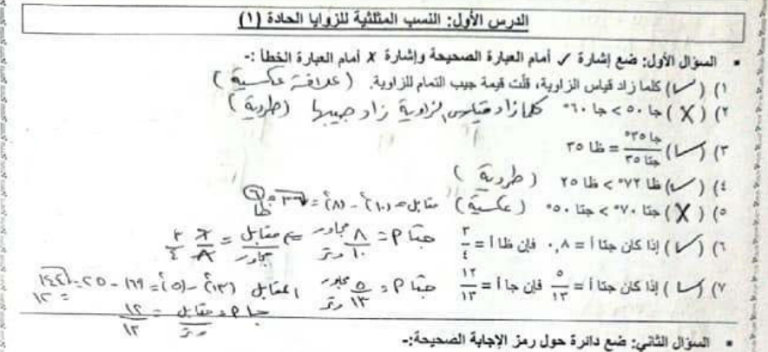 الدرس الأول: النسب المثلثية للزوايا الحادة (١)
السؤال الأول: ضع إشارة ✓ أمام العبارة الصحيحة وإشارة ✗ أمام العبارة الخطأ :-
١) (✓) كلما زاد قياس الزاوية، قلّت قيمة جيب التمام للزاوية. (علاقة عكسية)
٢) (X) جا ٥٠ > جا ٦٠° كلما زاد قياس الزاوية زاد جيبها (طردية)
٣) (✓) جا ٣٥° / جتا ٣٥ = ظا ٣٥
٤) (✓) ظا ٧٢° > ظا ٢٥ (طردية)
٥) (X) جتا ٧٠° > جتا ٥٠° (عكسية) مقابل = (١٠)² - (٨)² = √٣٦ = ٦
٦) (✓) إذا كان جتا أ = ٠,٨ فإن ظا أ = ٣/٤ جتا م = ٨/١٠ مجاور/وتر = مقابل/مجاور = ٦/٨ ٣/٤
٧) (✓) إذا كان جتا أ = ٥/١٣ فإن جا أ = ١٢/١٣ جتا م = ٥/١٣ مجاور/وتر المقابل (١٣)² - (٥)² = ١٦٩ - ٢٥ = √١٤٤ = ١٢
جا م = مقابل/وتر = ١٢/١٣
السؤال الثاني: ضع دائرة حول رمز الإجابة الصحيحة:-